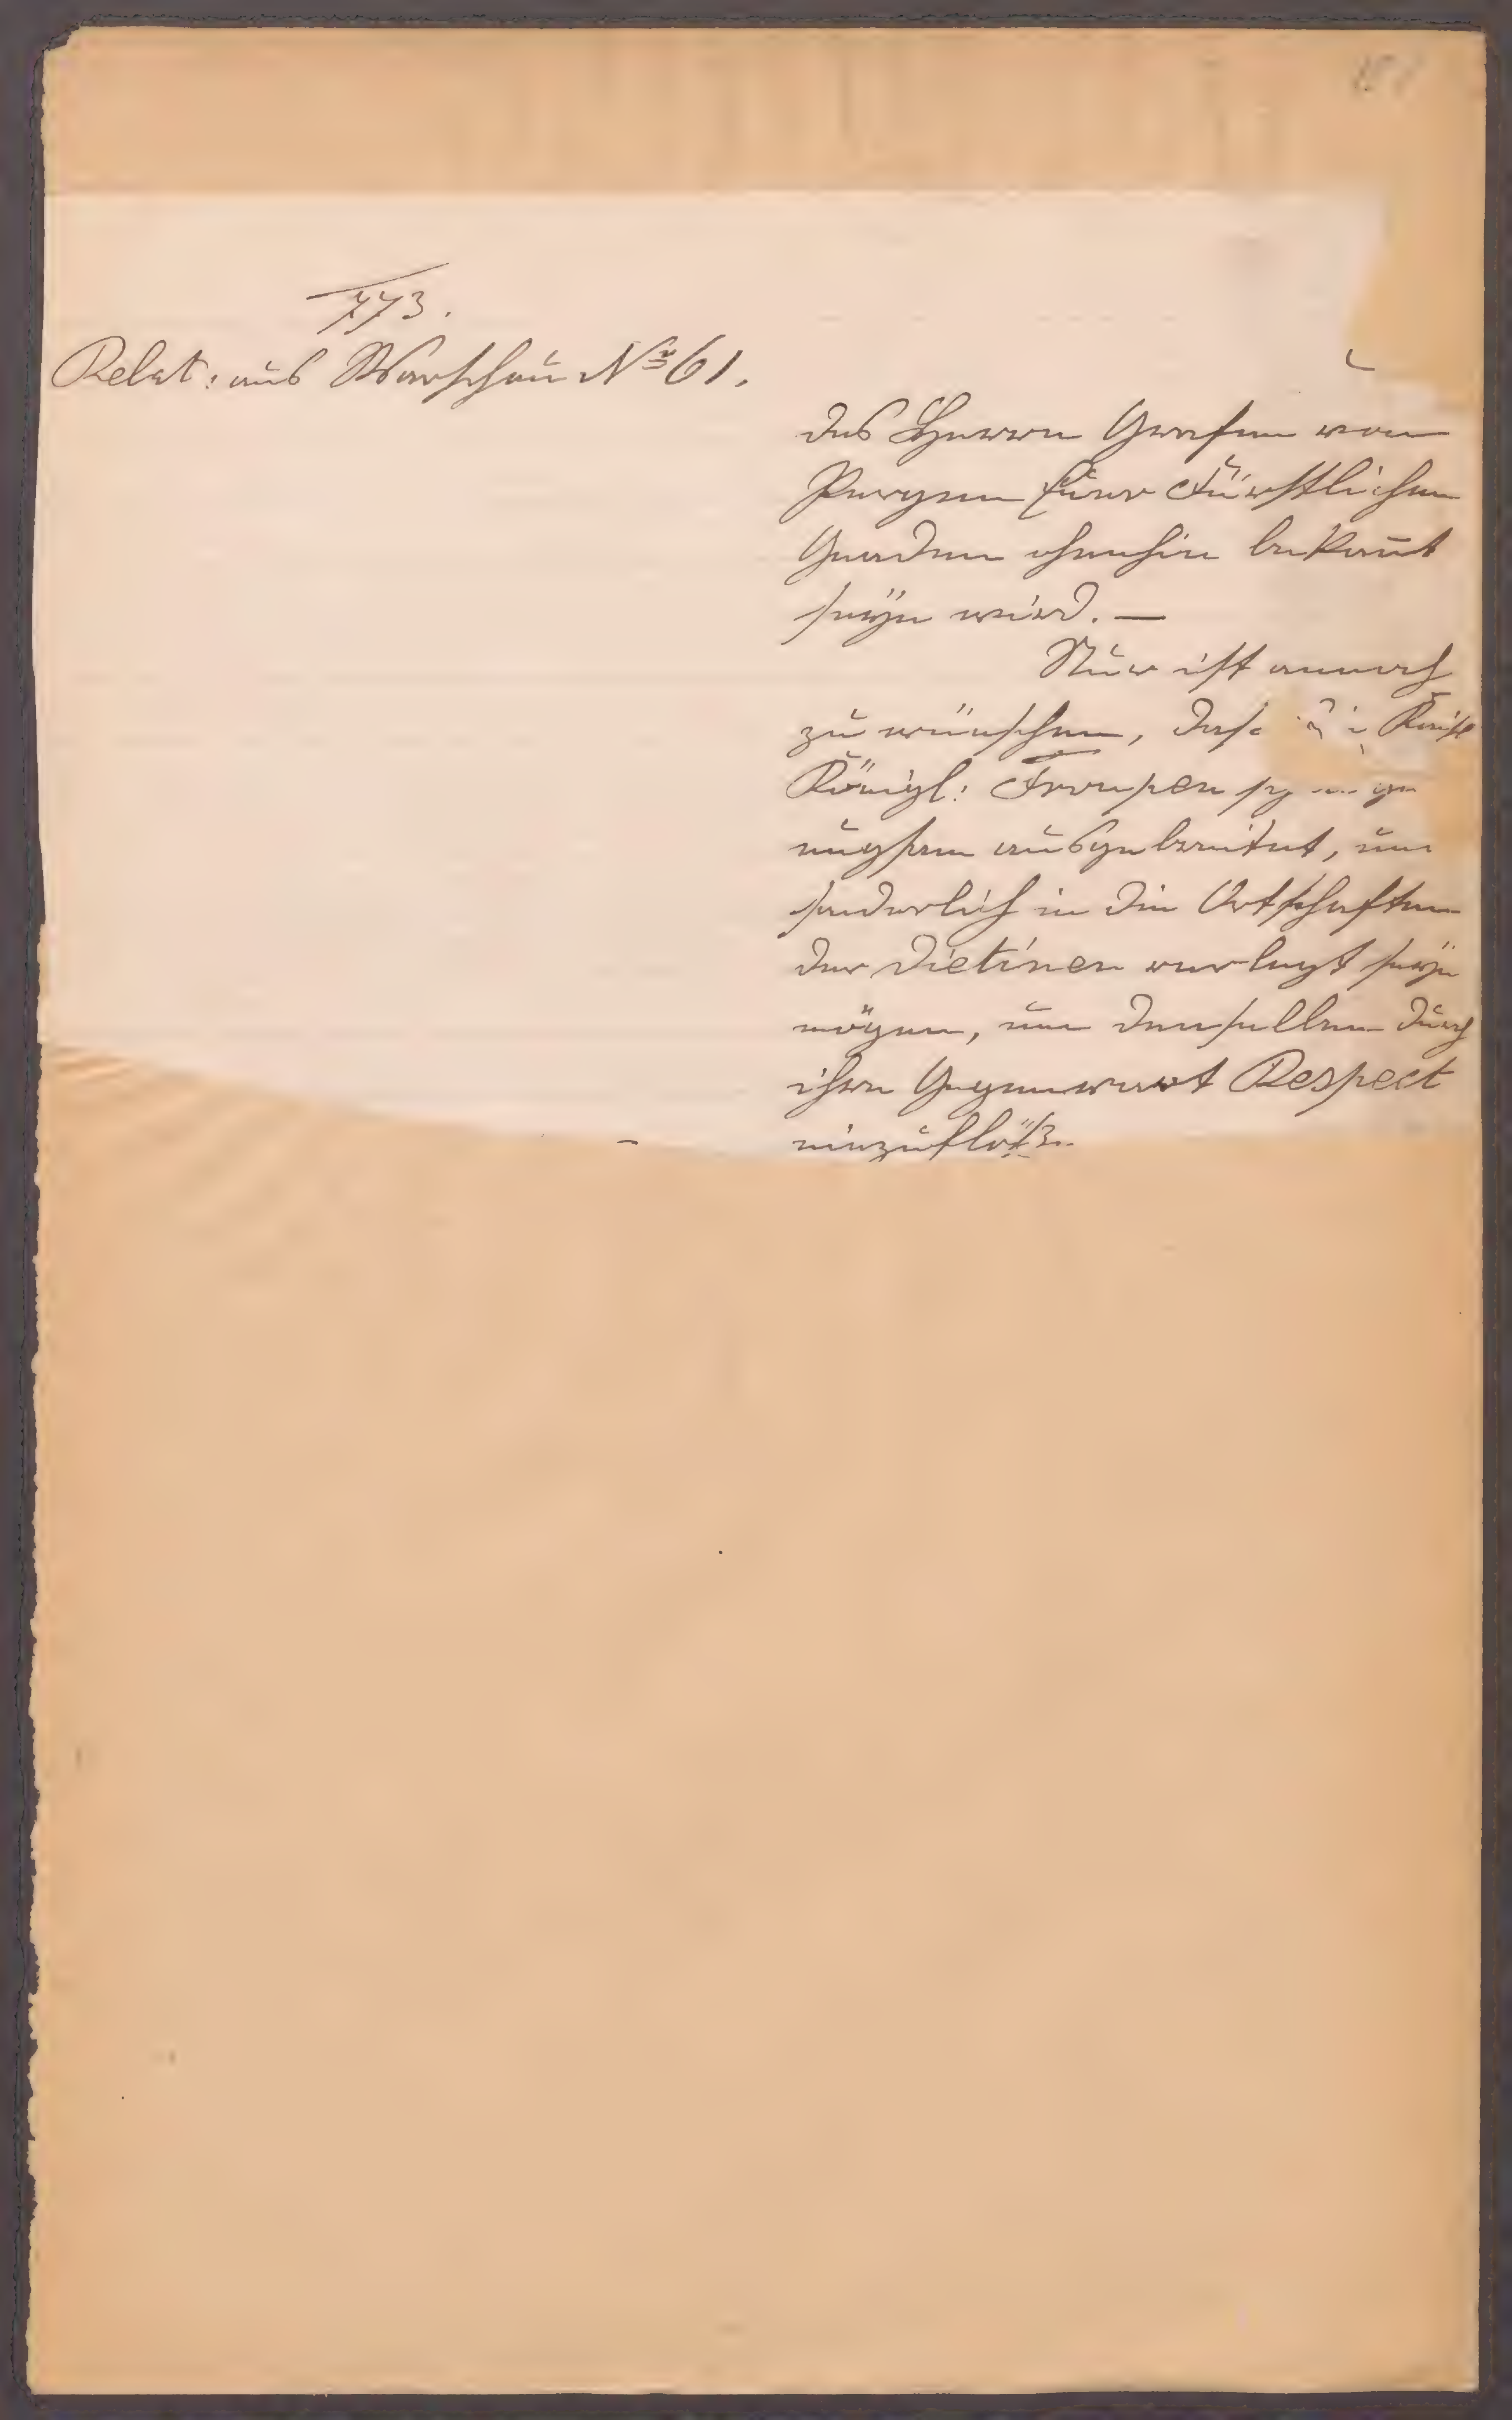 773.
Relat: aus Warschau Nro 61.
des Herrn Grafen von
Pergen Euer Fürstlichen
Gnaden ohnehin bekant
seÿn wird. —
Nur ist annoch
zu wünschen, dass die Kaisl
Königl: Troupen ge
nugsam ausgebreitet, und
sonderlich in die Ortschaften
der Dietinen verlegt seÿn
mögen, um denselben durch
ihre Gegenwart Respect
einzuflößen